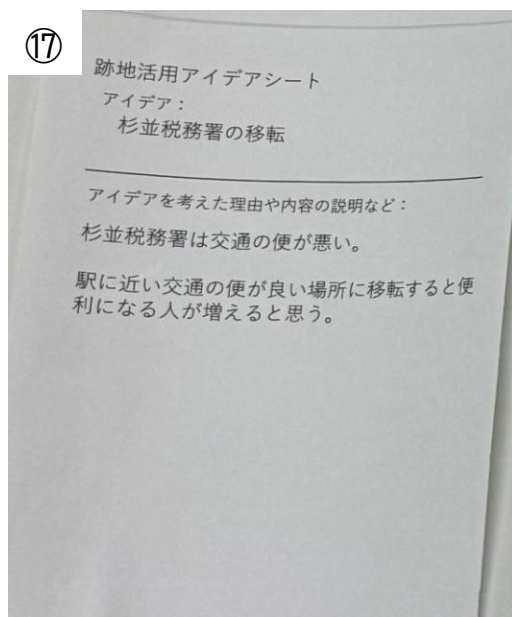 ⑰
跡地活用アイデアシート
アイデア：
杉並税務署の移転
アイデアを考えた理由や内容の説明など：
杉並税務署は交通の便が悪い。
駅に近い交通の便が良い場所に移転すると便
利になる人が増えると思う。